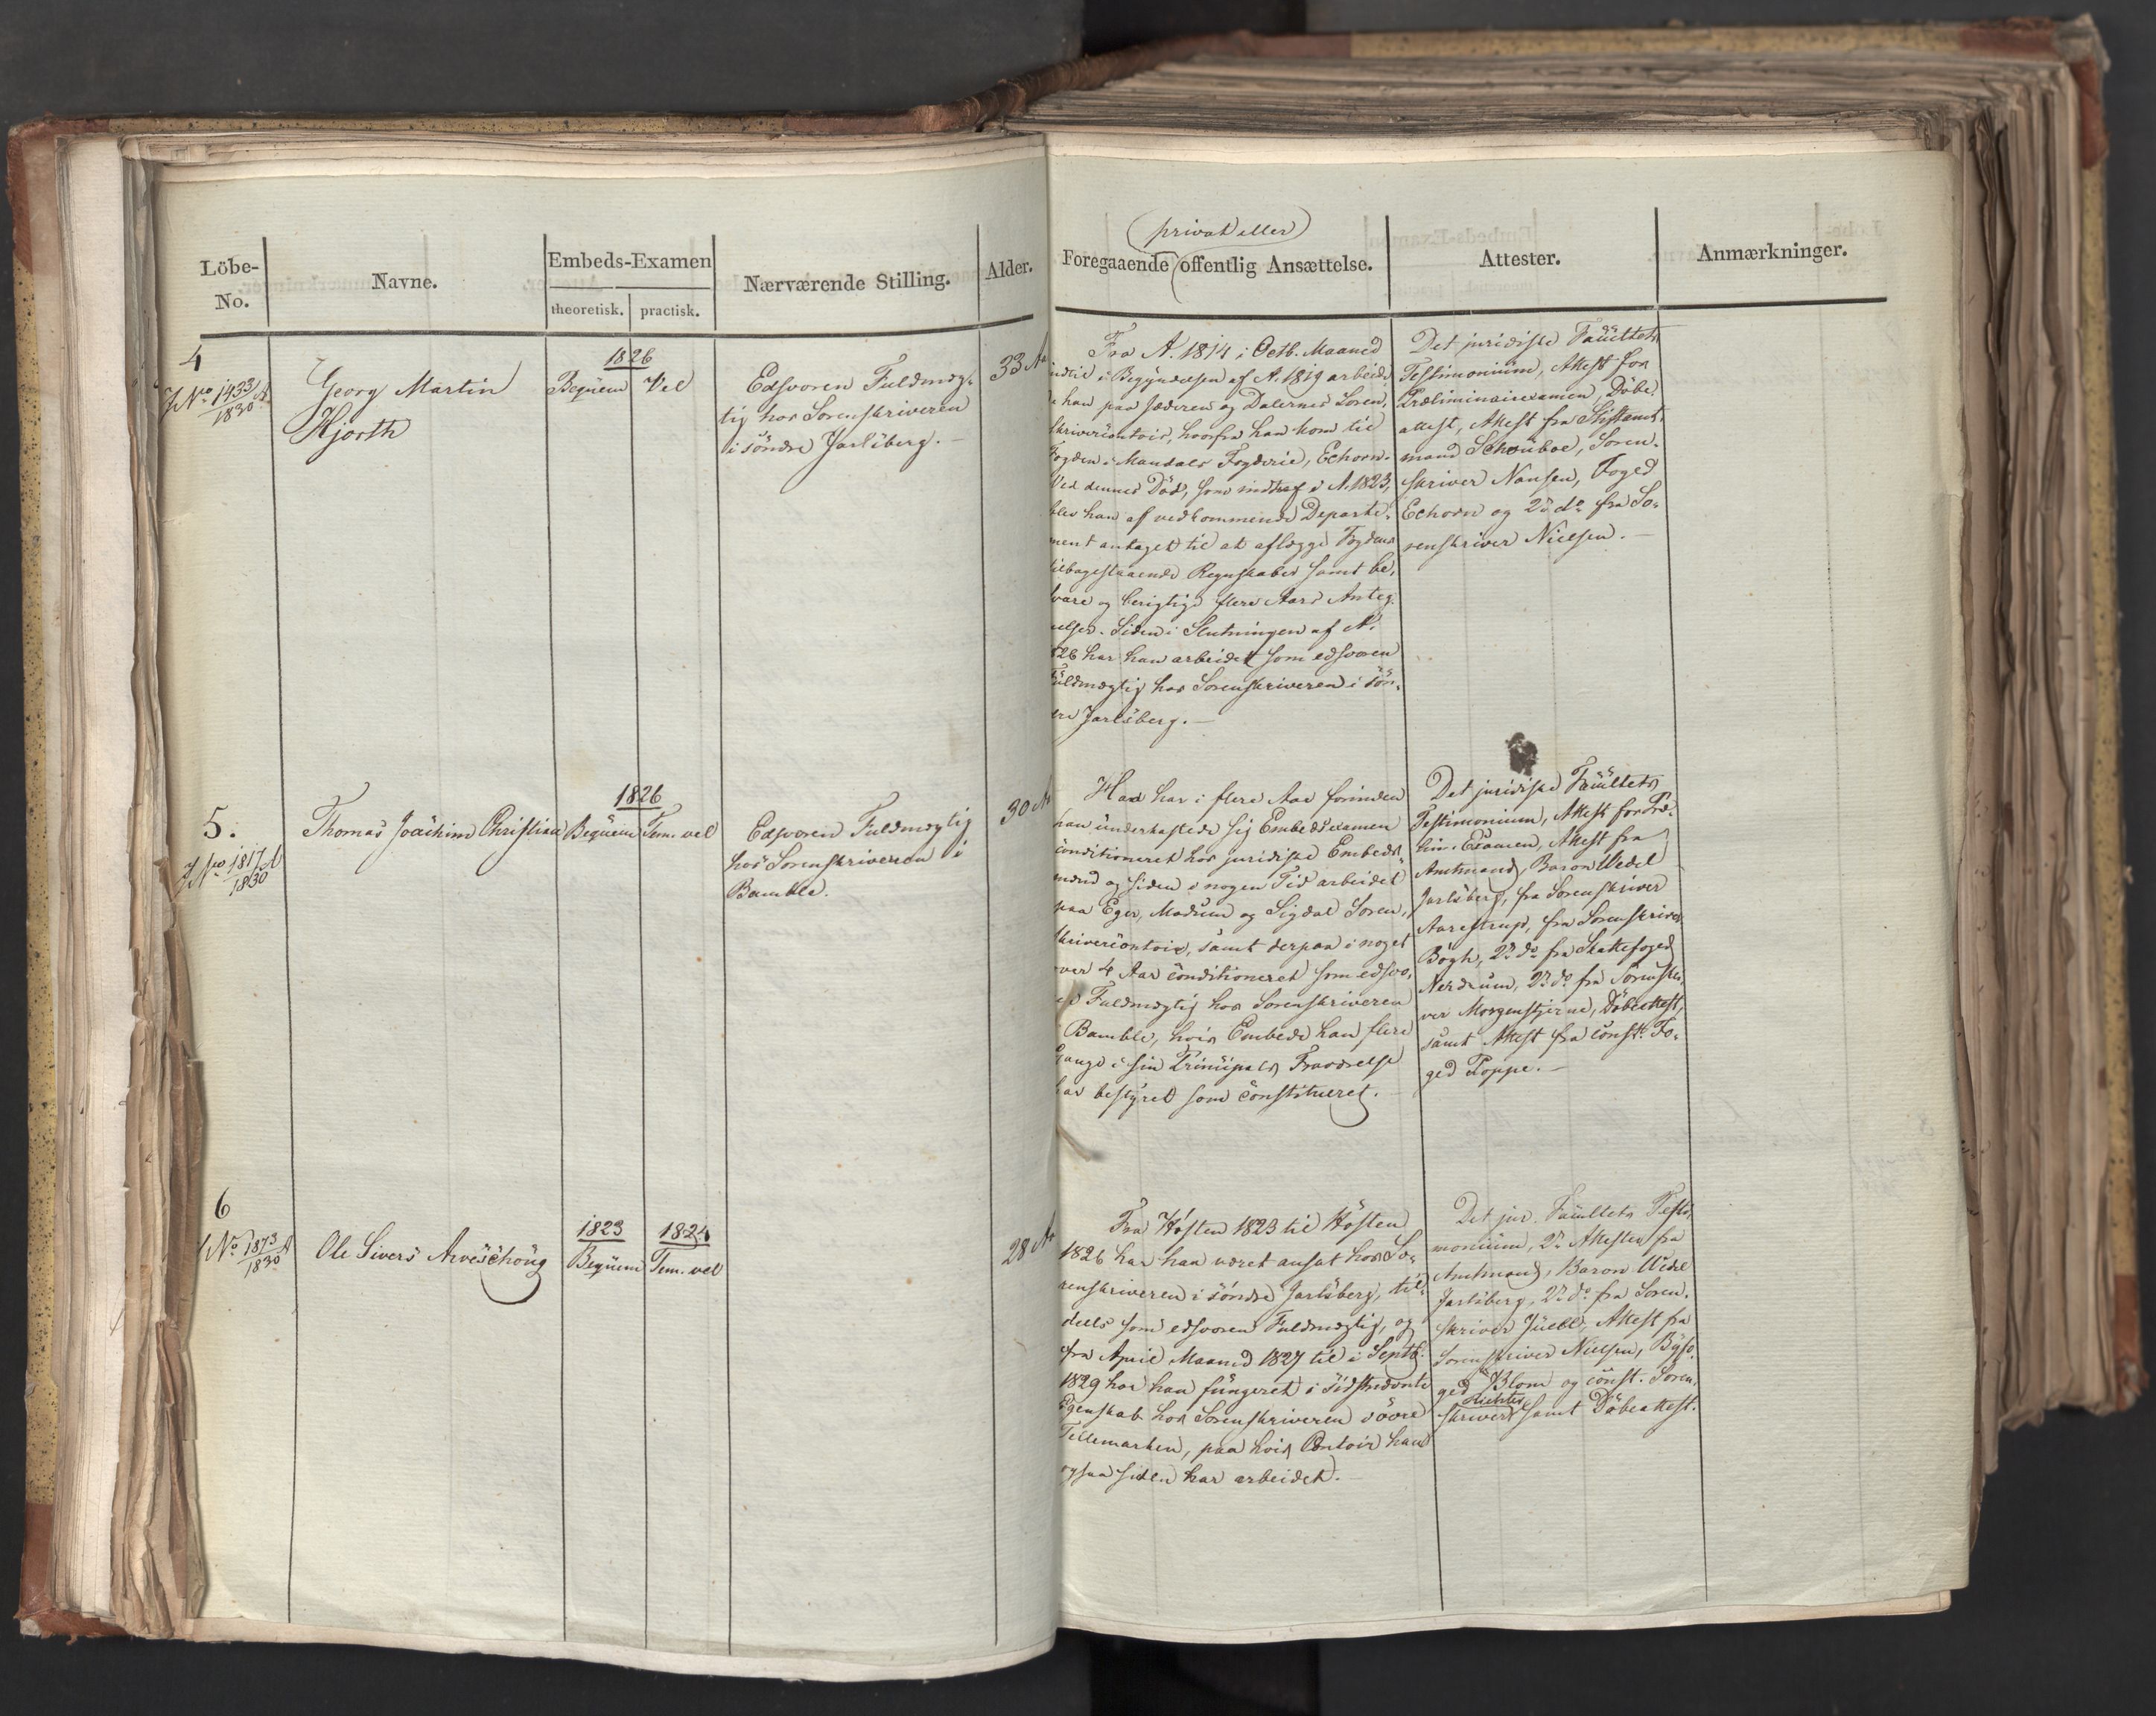 Löbe-
No.
Navne.
Embeds-Examen
theoretisk.
practisk.
Nærværende Stilling.
Alder.
(privat eller)
Foregaaende offentlig Ansættelse.
Attester.
Anmærkninger.
4
JNo 1433/1830 A
Georg Martin
Hjorth
1826
Beqüem
Vel
Edsvoren Fuldmæg-
tig hos Sorenskriveren
i söndre Jarlsberg.
33 Aar
Fra A. 1814 i Octb. Maaned
indtil i Begyndelsen af A. 1819 arbeide-
de han paa Jæderen og Dalernes Soren-
skrivercontoir, hvorfra han kom til
Fogden i Mandals Fogderie, Echorn.
Ved dennes Död, som indtraf i A. 1823,
blev han af vedkommende Departe-
ment antaget til at aflægge Fogdens
tilbagestaaende Regnskaber samt be-
svare og berigtige flere Aars Anteg-
nelser. Siden i Slutningen af A.
1826 har han arbeidet som edsvoren
Fuldmægtig hos Sorenskriveren i sön-
dre Jarlsberg.
Det juridiske Facultets
Testimonium, Attest for
Præliminairexamen, Döbe-
attest, Attest fra Stiftamt-
mand Schouboe, Soren-
skriver Nansen, Foged
Echorn og 2de do fra So-
renskriver Nielsen.
5.
JNo 1817/1830 A
Thomas Joachim Christian
1826
Beqüem
Tem. vel
Edsvoren Fuldmægtig
hos Sorenskriveren i
Bamble.
30 Aar
Han har i flere Aar forinden
han underkastede sig Embedsexamen
conditioneret hos juridiske Embeds-
mænd og siden i nogen Tid arbeidet
paa Eger, Modum og Sigdal Soren-
skrivercontoir, samt derpaa i noget
over 4 Aar conditioneret som edsvo-
ren Fuldmægtig hos Sorenskriveren
i Bamble, hvis Embede han flere
Gange i sin Principals Fraværelse
har bestyret som constitueret.
Det juridiske Facultets
Testimonium, Attest for Præ-
lim. Examen, Attest fra
Amtmand, Baron Wedel
Jarlsberg, fra Sorenskriver
Aarestrup, fra Sorenskriver
Bögh, 2de do fra Skattefoged
Nerdrum, 2de do fra Sorenskri-
ver Morgenstjerne, Döbeattest,
samt Attest fra const. Fo-
ged Poppe.
6
JNo 1873/1830 A
Ole Sivers Arveschoug
1823
Beqüem
1824
Tem. vel
28 Aar
Fra Hösten 1823 til Hösten
1826 har han været ansat hos So-
renskriveren i söndre Jarlsberg, til-
deels som edsvoren Fuldmægtig, og
fra April Maaned 1827 til i Septb.
1829 har han fungeret i sidstnævnte
Egenskab hos Sorenskriveren i övre
Tellemarken, paa hvis Contoir han
ogsaa siden har arbeidet.
Det jur. Facultets Testi-
monium, 2de Attester fra
Amtmand, Baron Wedel
Jarlsberg, 2de do fra Soren-
skriver Juell, Attest fra
Sorenskriver Nielsen, Byfo-
ged Blom og const. Soren-
skriver Richter samt Döbeattest.